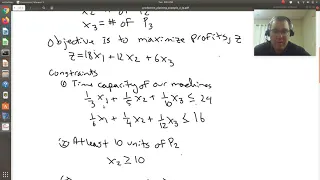 x₃ = # of P₃
Objective is to maximize profits, z
z = 18x₁ + 12x₂ + 6x₃
Constraints
(1) Time capacity of our machines
1/3 x₁ + 1/5 x₂ + 1/10 x₃ ≤ 24
1/6 x₁ + 1/4 x₂ + 1/12 x₃ ≤ 16
(2) At least 10 units of P₂
x₂ ≥ 10